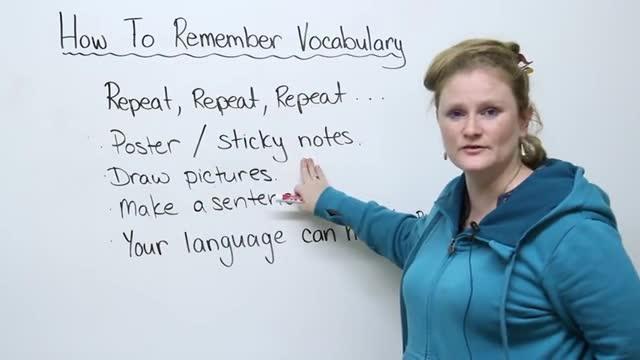 How To Remember Vocabulary
Repeat, Repeat, Repeat...
· Poster / sticky notes.
· Draw pictures.
· Make a
· Your language can